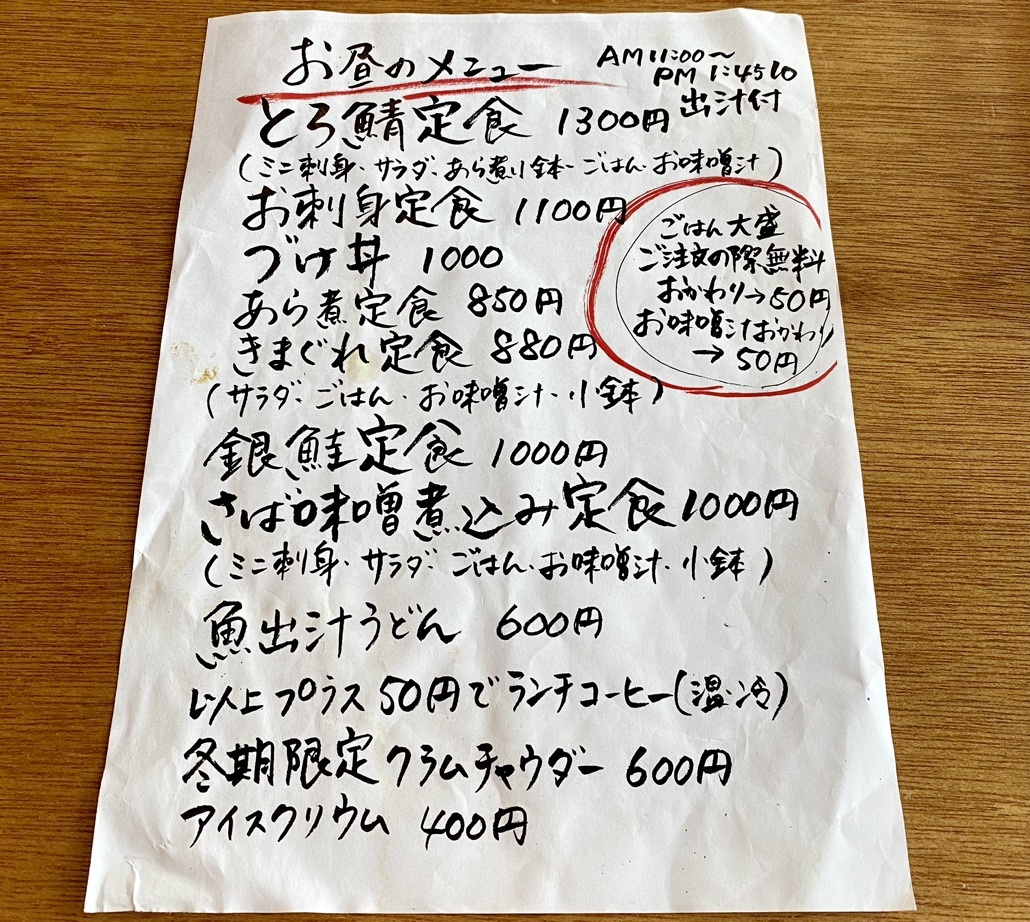 お昼のメニュー AM11:00〜
PM 1:45LO
とろ鯖定食 1300円 出汁付
(ミニ刺身・サラダ・あら煮小鉢・ごはん・お味噌汁)
お刺身定食 1100円
づけ丼 1000
あら煮定食 850円
きまぐれ定食 880円
(サラダ・ごはん・お味噌汁・小鉢)
ごはん大盛
ご注文の際無料
おかわり→50円
お味噌汁おかわり
→50円
銀鮭定食 1000円
さば味噌煮込み定食 1000円
(ミニ刺身・サラダ・ごはん・お味噌汁・小鉢)
魚出汁うどん 600円
以上プラス50円でランチコーヒー(温・冷)
冬期限定クラムチャウダー 600円
アイスクリウム 400円